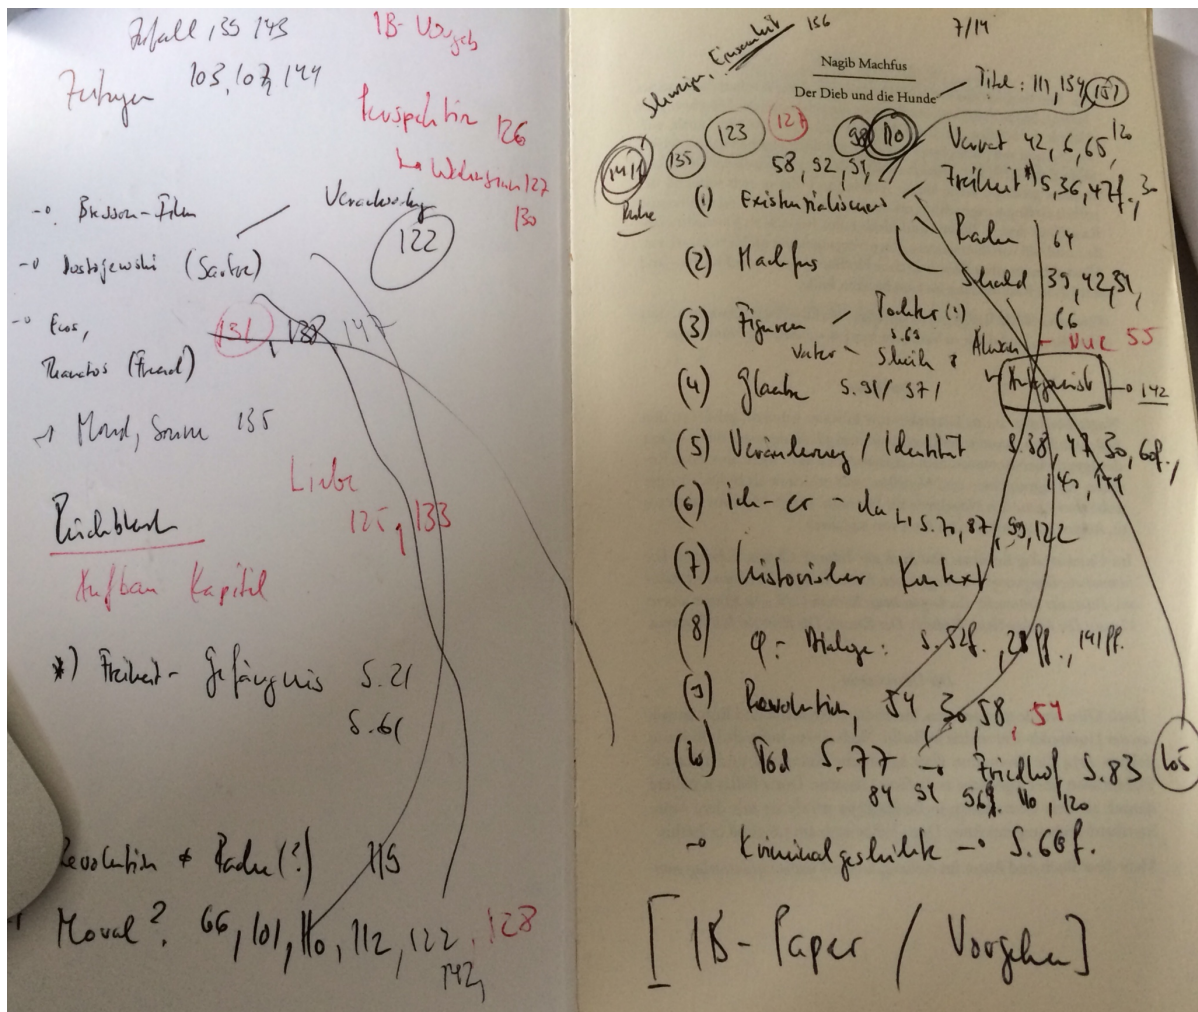 Zufall 135 143
IB-Vorgeb
Zeitungen 103, 107, 144
Perspektive 126
↳ Wahnsinn 127
130
→ Bresson-Film
Verantwortung
122
→ Dostojewski (Sartre)
→ Eros,
Thanatos (Freud)
131, 138, 147
→ Mond, Sonne 135
Liebe
125, 133
Rückblende
Aufbau Kapitel
*) Freiheit - Gefängnis S. 21
S. 61
Revolution ≠ Rache (?) 115
Moral? 66, 101, 110, 112, 122, 128
142,
Schweigen, Einsamkeit 156
7/14
Nagib Machfus
Der Dieb und die Hunde
Titel: 111, 154, 157
141
135
123
127
98
110
Ruhe
58, 92, 91,
Verrat 42, 6, 65, 120
Freiheit*) 5, 36, 47f., 30
(1) Existentialismus
Rache 64
(2) Machfus
Schuld 39, 42, 51,
66
(3) Figuren
Tochter (!)
S. 69
Vater - Sheih
Alwan
Nur 55
(4) Glaube S. 91/ 97/
Antagonist → 142
(5) Veränderung / Identität S. 38, 47, 30, 60f.,
140, 149
(6) ich - er - du ↳ S. 70, 87, 99, 122
(7) historischer Kontext
(8) φ - Dialoge: S. 52f., 28ff., 141ff.
(9) Revolution, 54, 30, 58, 54
(10) Tod S. 77 → Friedhof S. 83
105
84 91 96f. 110, 120
→ Kriminalgeschichte → S. 66f.
[IB-Paper / Vorgehen]